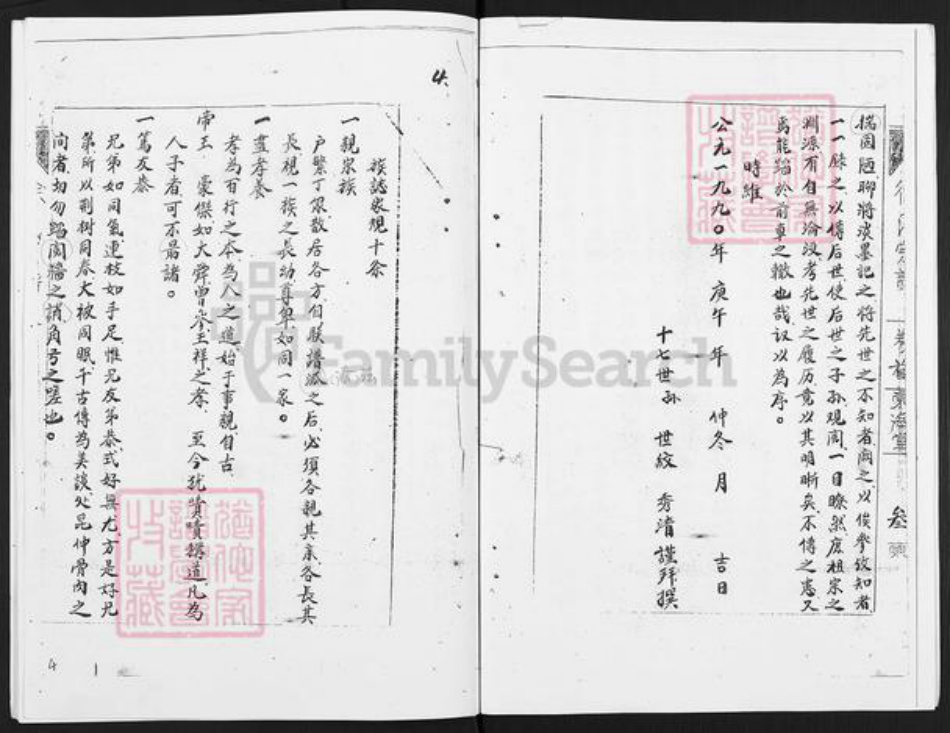 揣固陋聊将淡墨記之将先世之不知者阙之以俟參攷知者
一一錄之以傳后世使后世之子孙观阅一目瞭然庶祖宗之
渊源有自無淪没考先世之履历竟以其明晰矣不傳之患又
焉能蹈於前車之轍也哉 以為序。
時維
公元一九九〇年 庚午年 仲冬月 吉日
十七世孙 世紋 秀清 謹拜撰
卷首 東海堂 叁
4.
族誌家規十条
一親宗族
户繁丁眾散居各方自联譜派之后必须各親其亲各長其
長視一族之長幼尊卑如同一家。
一盡孝养
孝為百行之本為人之道始于事親自古
帝王 豪傑如大舜曾参王祥之孝 至今犹啧啧稱道凡為
人子者可不勗諸。
一篤友恭
兄弟如同氣連枝如手足惟兄友弟恭式好無尤方是好兄
弟所以荆树同春大被同眠千古傳為美談处昆仲骨肉之
间者切勿蹈阋墙之誚角弓之嗟也。
4 1
FamilySearch